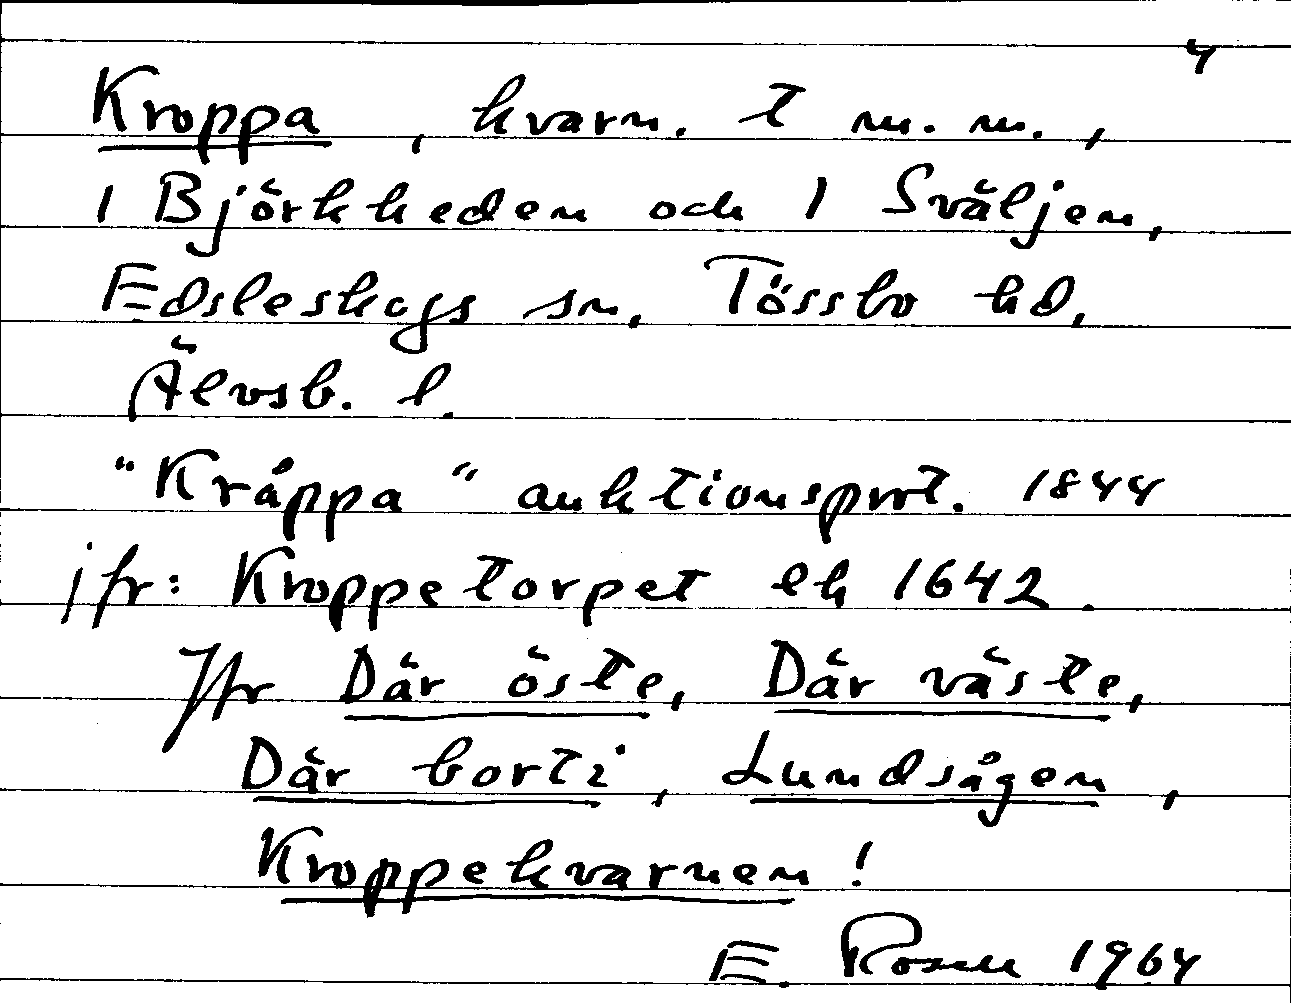 4
Kroppa, kvarn. t m. m.,
1 Björkheden och 1 Sväljen,
Edsleskogs sn. Tössbo hd,
Älvsb. l.
"Kråppa" auktionsprot. 1844
jfr: Kroppetorpet ek 1642.
Jfr Där öste, Där väste,
Där borti, Lundsågen,
Kroppekvarnen!
E. Rosell 1964